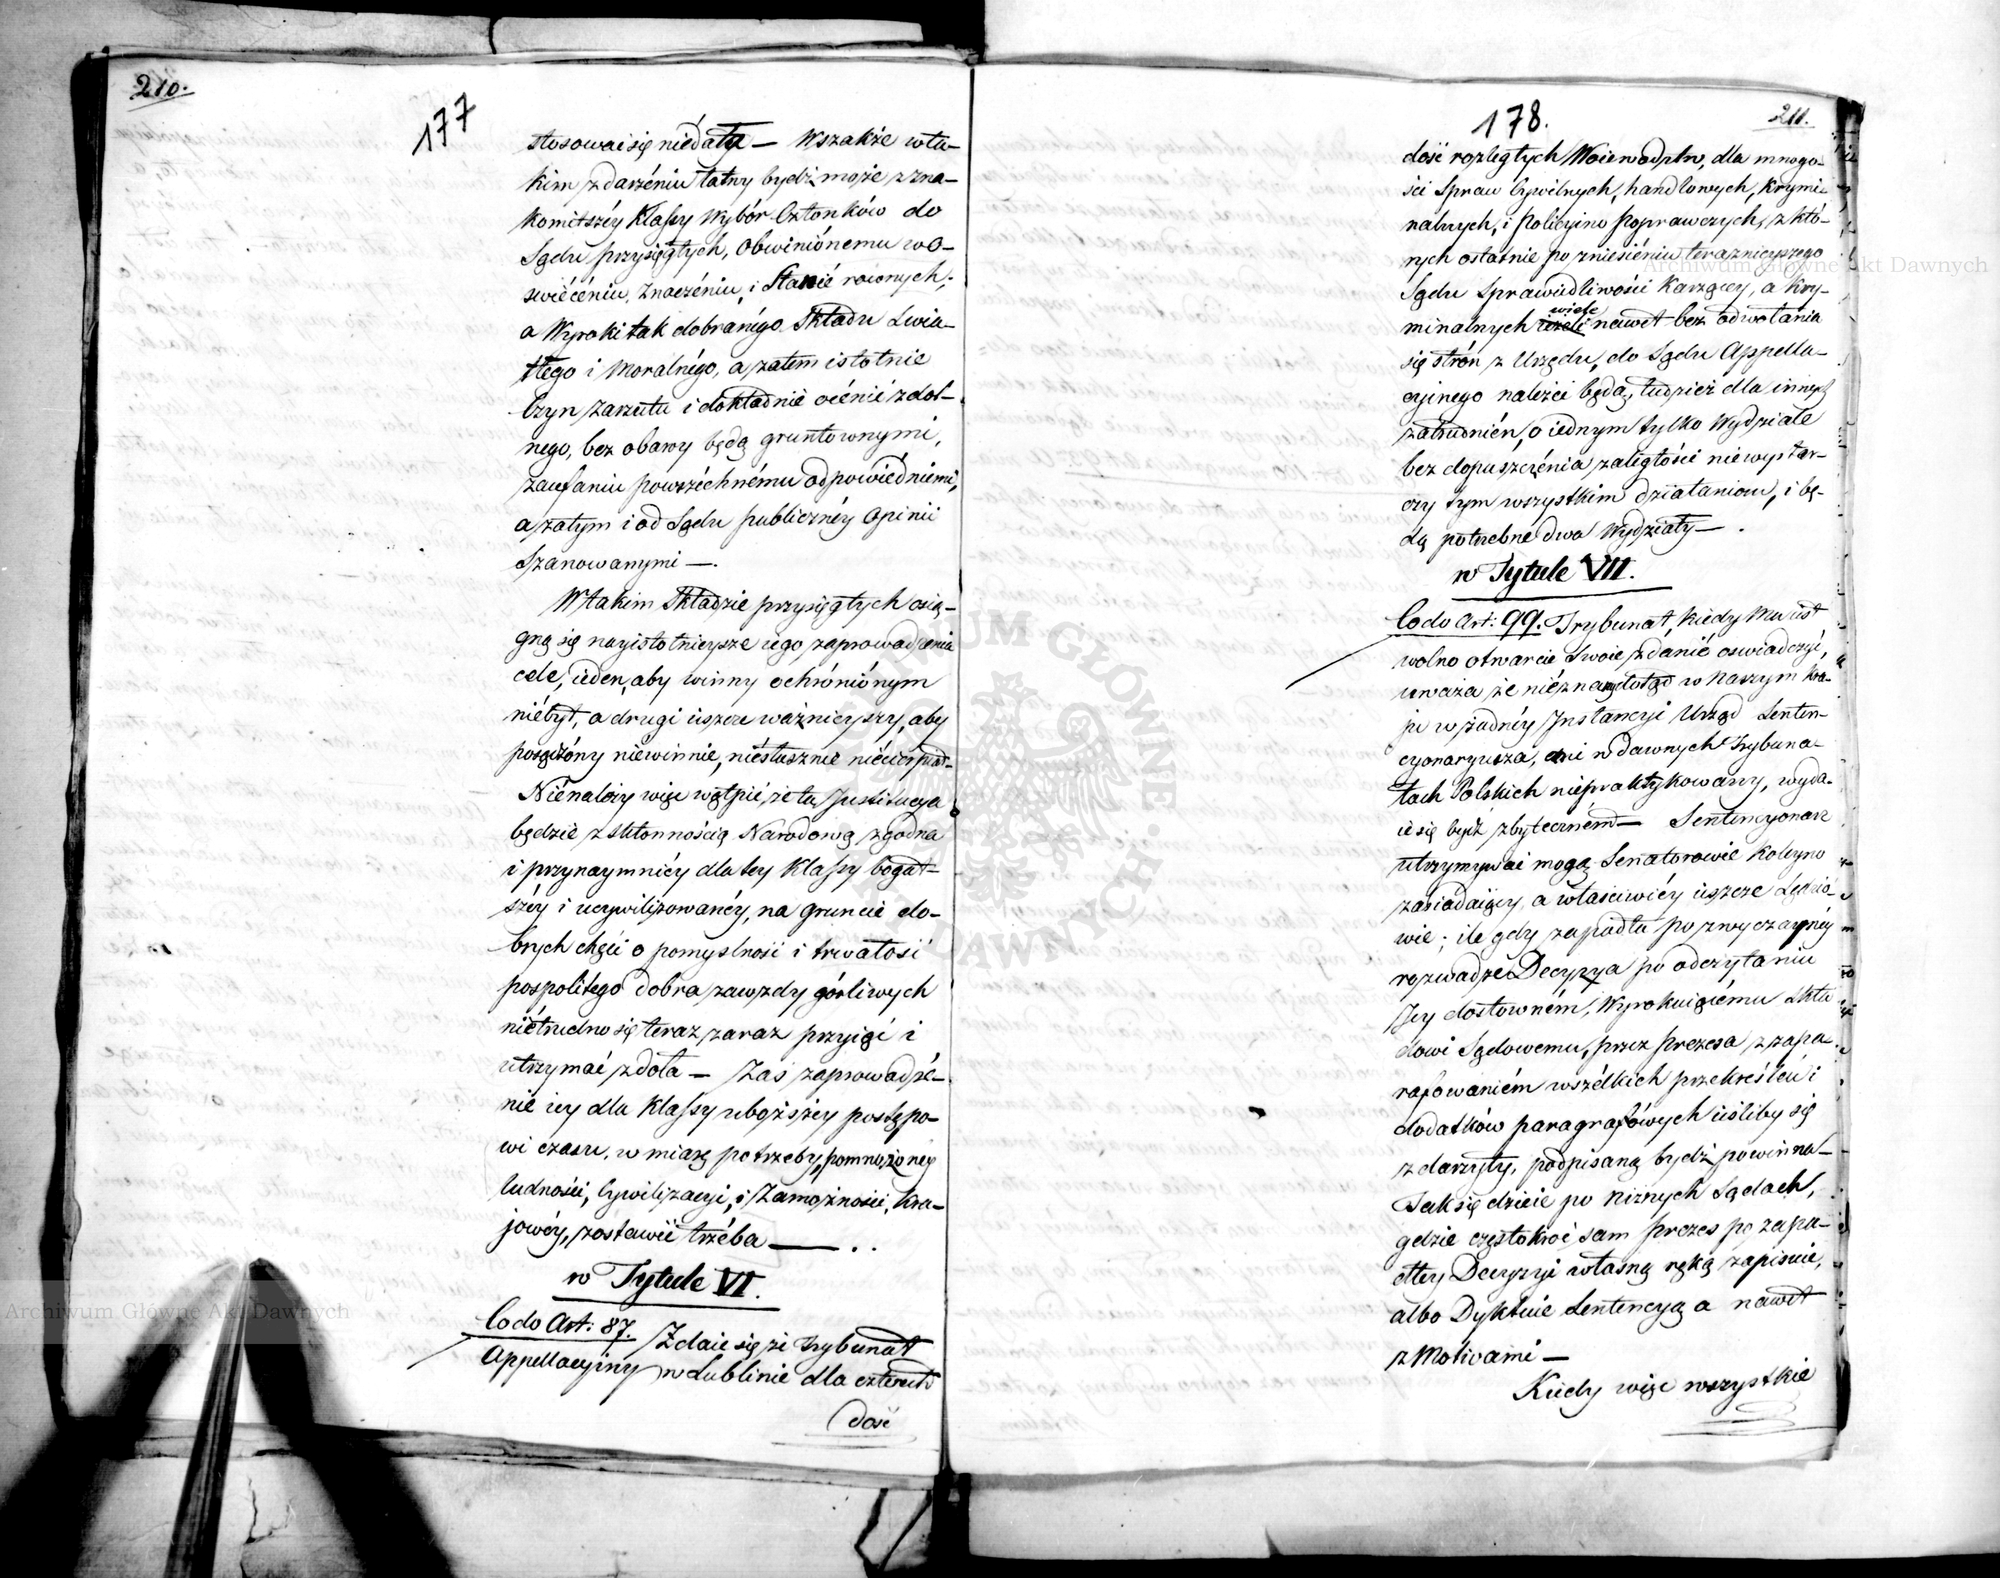 210.
177
stosować się niedały — Wszakże w ta-
kim zdarzéniu łatwy bydź może z zna-
komitszéy Klassy Wybór Członków do
Sądu przysięgłych, Obwinionemu w o-
swiécéniu, Znaczéniu, i Stanié rownych;
a Wyroki tak dobranégo Składu Świa-
tłego i Moralnégo, a zatem istotnie
Czyn Zarzutu i dokładnié océnić zdol-
nego, bez obawy będą gruntownymi,
zaufaniu powszéchnému odpowiédniemi,
a zatym i od Sądu publicznéy Opinii
Szanowanymi —.
W takim Składzie przysięgłych osią-
gną się nayistotnieysze iego zaprowadzenia
cele, ieden, aby winny ochróniónym
niébył, a drugi ieszcze ważnieyszy, aby
posądzóny niéwinnie, niésłusznie niécierpiał —
Niénależy więc wątpić, że ta Justitucya
będzie z skłonnością Narodową zgodna
i przynaymniéy dla tey Klassy bogat-
széy i ucywilizowanéy, na gruncie do-
brych chęci o pomyslność i trwałość
pospolitego dobra zawzdy górliwych
niétrudno się teraz zaraz przyiąć i
utrzymać zdoła — Zaś zaprowadzé-
nié iey dla Klassy uboższéy postępo-
wi czasu, w miarę potrzeby, pomnożoney
ludności, Cywilizacyi, i Zamożności, Kra-
jowéy, zostawić trzéba — . .
w Tytule VI.
Co do Art: 87. Zdaie się że Trybunał
Appellacyiny w Lublinie dla czterech
dość
178.
211.
dość rozległych Woiewodztw, dla mnogo-
ści Spraw Cywilnych, handlowych, Krymi-
nalnych, i Policyino Poprawczych, z któ-
rych ostatnie po zniesiéniu teraznieyszego
Sądu Sprawiedliwości Karzącey, a Kry-
wiele
minalnych nawet bez odwołania
się strón z Urzędu, do Sądu Appella-
cyinego należéć będą, tudzież dla innych
zatrudnién, o iednym tylko Wydziale
bez dopuszczénia zaległości niewystar-
czy tym wszystkim działaniom, i bę-
dą potrzebne dwa Wydziały — .
w Tytule VII.
Co do Art: 99. Trybunał, kiedy Mu iest
wolno otwarcie Swoie zdanié oswiadczyć,
uważa że niéznany dotąd w Naszym Kra-
ju w żadnéy Instancyi Urząd Senten-
cyonaryusza, ani w dawnych Trybuna-
łach Polskich niepraktykowany, wyda-
ie się bydź zbyteczném — Sentencyonarz
utrzymywać mogą Senatorowie Koleyno
zasiadaiący, a właściwiéy ieszcze Sędzio-
wie; ile gdy zapadła po zwyczaynéy
rozwadze Decyzya po odczytaniu
Jey dosłowném, Wyrokuiącému Skła
dowi Sądowemu, przez Prezesa z zapa-
rafowaniém wszélkich przekreśleń i
dodatków paragrafówych ieśliby się
zdarzyły, podpisaną bydź powinna —
Tak się dzieie po niznych Sądach,
gdzie częstokroć sam Prezes po zapa-
dłey Decyzyi własną ręką zapisuie,
albo Dyktuie Sentencyą a nawet
z Motivami —
Kiedy więc wszystkie
Archiwum Główne Akt Dawnych
Archiwum Główne Akt Dawnych
ARCHIWUM GŁÓWNE AKT DAWNYCH